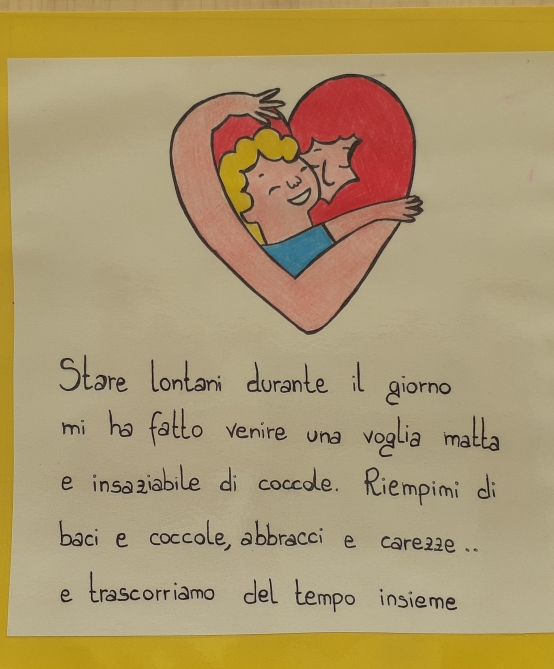 Stare lontani durante il giorno
mi ha fatto venire una voglia matta
e insaziabile di coccole. Riempimi di
baci e coccole, abbracci e carezze..
e trascorriamo del tempo insieme